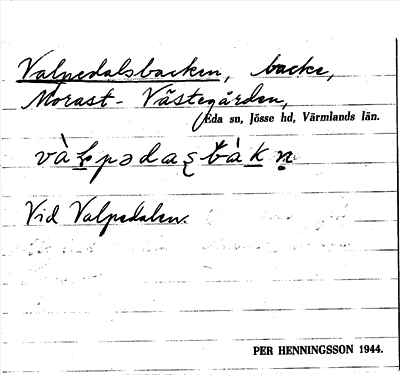 Valpedalsbacken, backe,
Morast- Västegården,
Eda sn, Jösse hd, Värmlands län.
Vid Valpedalen.
PER HENNINGSSON 1944.